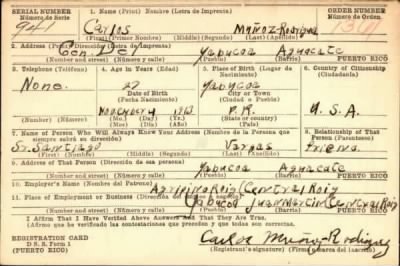 SERIAL NUMBER 1. Name (Print) Nombre (Letra de Imprenta) ORDER NUMBER
Número de Serie Número de Orden
941 Carlos Muñoz-Rodriguez
(First) (Primer Nombre) (Middle) (Segundo) (Last) (Apellido)
2. Address (Print) Dirección (Letra de Imprenta)
Gen. Del Yabucoa Aguacate
(Barrio) PUERTO RICO
3. Telephone (Teléfono) 4. Age in Years (Edad) 5. Place of Birth (Lugar de Nacimiento) 6. Country of Citizenship (Ciudadanía)
None. 27 Yabucoa
Date of Birth City or Town
Fecha Nacimiento (Ciudad o Pueblo)
November 4 1913 P.R. U.S.A.
(Mo.) (Day) (Yr.) State or country
(Mes) (Día) (Año) (Estado o país)
7. Name of Person Who Will Always Know Your Address (Nombre de la Persona que siempre sabrá su dirección) 8. Relationship of That Person (Parentesco)
Sr. Santiago Vargas friend
(First) (Primer Nombre) (Middle) (Segundo) (Last) (Apellido)
9. Address of That Person (Dirección de esa persona)
Yabucoa Aguacate
(Barrio) PUERTO RICO
10. Employer's Name (Nombre del Patrono)
Roig (Central Roig
11. Place of Employment or Business (Dirección)
Yabucoa Juan Martin Central Roig
(Barrio) PUERTO RICO
I Affirm That I Have Verified Above Answers and That They Are True.
(Afirmo que he verificado las contestaciones que preceden y que todas son correctas.)
REGISTRATION CARD
D. S. S. Form 1
(PUERTO RICO)
Carlos Munoz Rodriguez
(Registrant's signature) (Firma del inscrito)